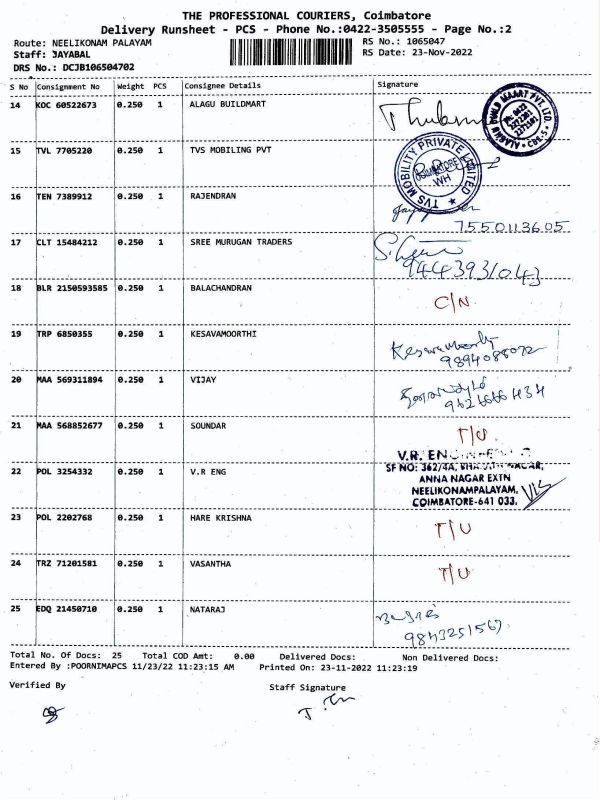 THE PROFESSIONAL COURIERS, Coimbatore
Delivery Runsheet - PCS - Phone No.:0422-3505555 - Page No.:2
Route: NEELIKONAM PALAYAM RS No.: 1065047
Staff: JAYABAL RS Date: 23-Nov-2022
DRS No.: DCJB106504702
S No Consignment No Weight PCS Consignee Details Signature
14 KOC 60522673 0.250 1 ALAGU BUILDMART
15 TVL 7705220 0.250 1 TVS MOBILING PVT
TVS MOBILITY PRIVATE LIMITED
COIMBATORE
WH
16 TEN 7389912 0.250 1 RAJENDRAN
7550113605
17 CLT 15484212 0.250 1 SREE MURUGAN TRADERS
94443931043
18 BLR 2150593585 0.250 1 BALACHANDRAN C/N
19 TRP 6850355 0.250 1 KESAVAMOORTHI
9894088072
20 MAA 569311894 0.250 1 VIJAY
21 MAA 568852677 0.250 1 SOUNDAR T/U
22 POL 3254332 0.250 1 V.R ENG
V.R.
SF NO: 362/4A,
ANNA NAGAR EXTN
NEELIKONAMPALAYAM,
COIMBATORE-641 033.
23 POL 2202768 0.250 1 HARE KRISHNA T/U
24 TRZ 71201581 0.250 1 VASANTHA T/U
25 EDQ 21450710 0.250 1 NATARAJ
9843251567
Total No. Of Docs: 25 Total COD Amt: 0.00 Delivered Docs: Non Delivered Docs:
Entered By :POORNIMAPCS 11/23/22 11:23:15 AM Printed On: 23-11-2022 11:23:19
Verified By Staff Signature